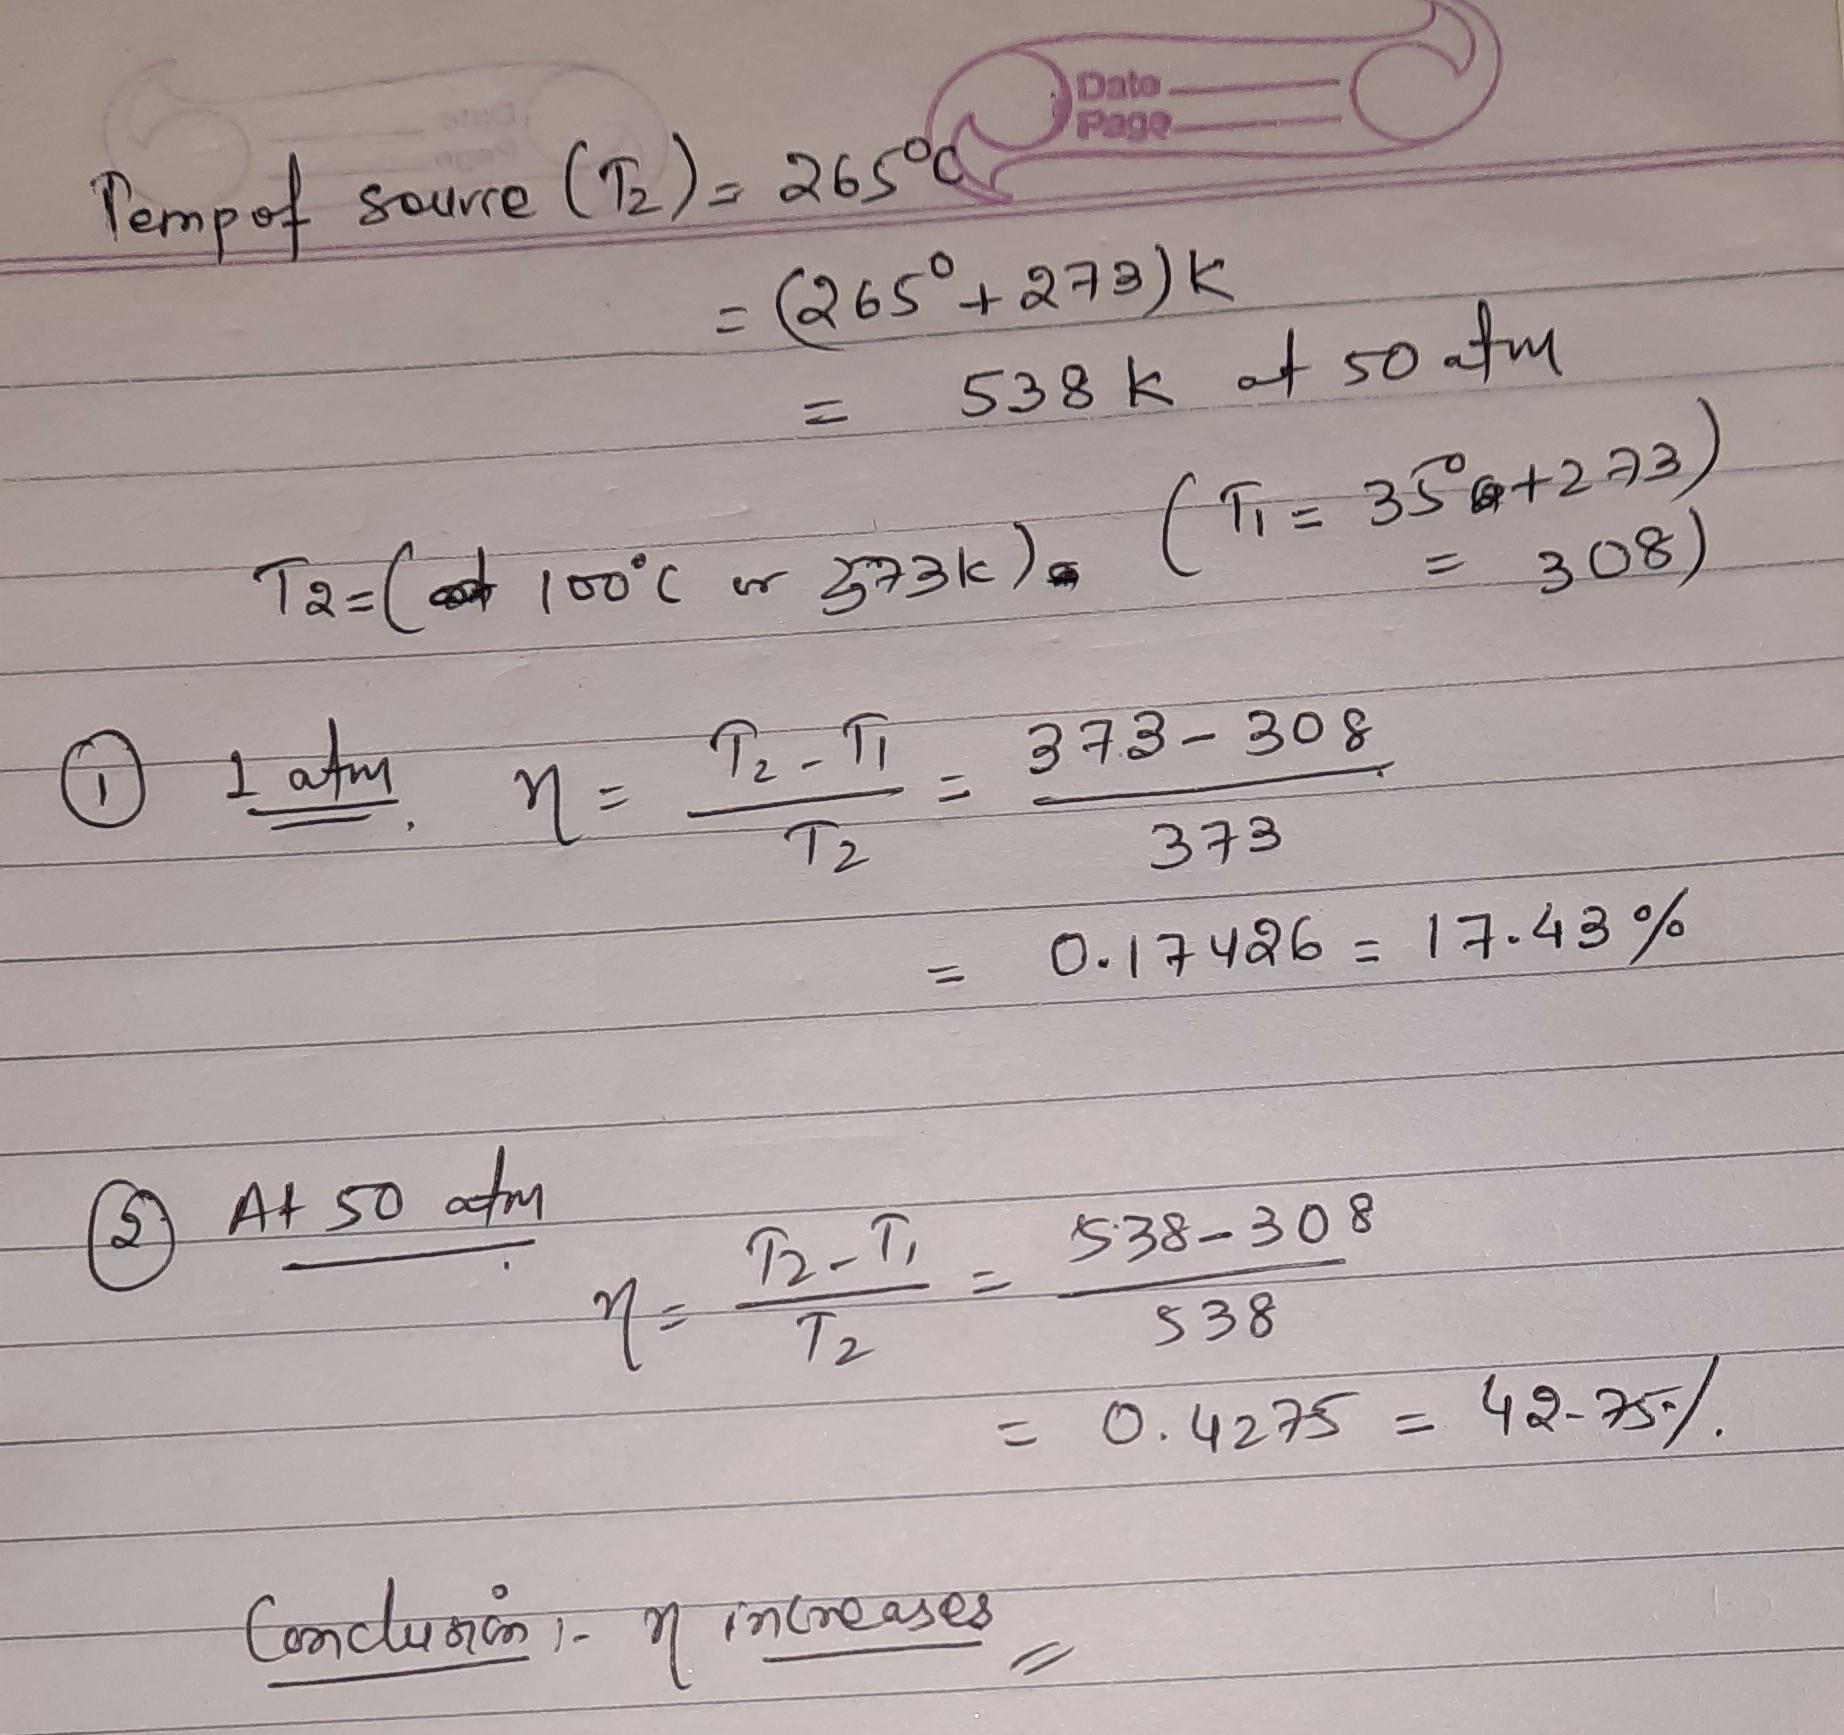 Date
Page
Temp of source (T2) = 265°C
= (265° + 273) K
= 538 K at 50 atm
T2 = ( 100°C or 373k) (T1 = 35° +273)
= 308)
① 1 atm. η = T2 - T1 / T2 = 373 - 308 / 373
= 0.17426 = 17.43 %
② At 50 atm.
η = T2 - T1 / T2 = 538 - 308 / 538
= 0.4275 = 42-75%.
Conclusion :- η increases